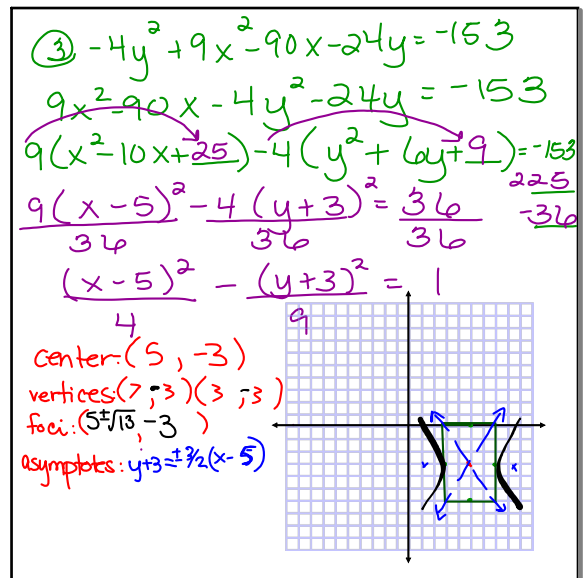 ③ -4y² + 9x² - 90x - 24y = -153
9x² - 90x - 4y² - 24y = -153
9(x² - 10x + 25) - 4(y² + 6y + 9) = -153
225
-36
9(x - 5)²/36 - 4(y + 3)²/36 = 36/36
(x - 5)²/4 - (y + 3)²/9 = 1
center: (5, -3)
vertices: (7, -3)(3, -3)
foci: (5 ± √13, -3)
asymptotes: y+3 = ± 3/2(x - 5)